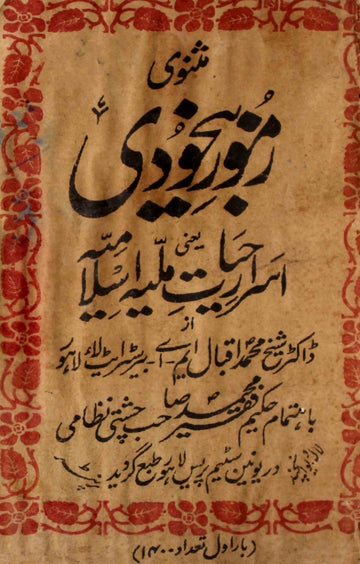 مثنوی
رموز بیخودی
یعنی
اسرار حیات ملیہ اسلامیہ
از
ڈاکٹر شیخ محمد اقبال ایم۔اے۔ بیرسٹر ایٹ لاء لاہور
باہتمام حکیم فقیر محمد صاحب چشتی نظامی
در یونین سٹیم پریس لاہور طبع گردید
(بار اول تعداد ۱۴۰۰)